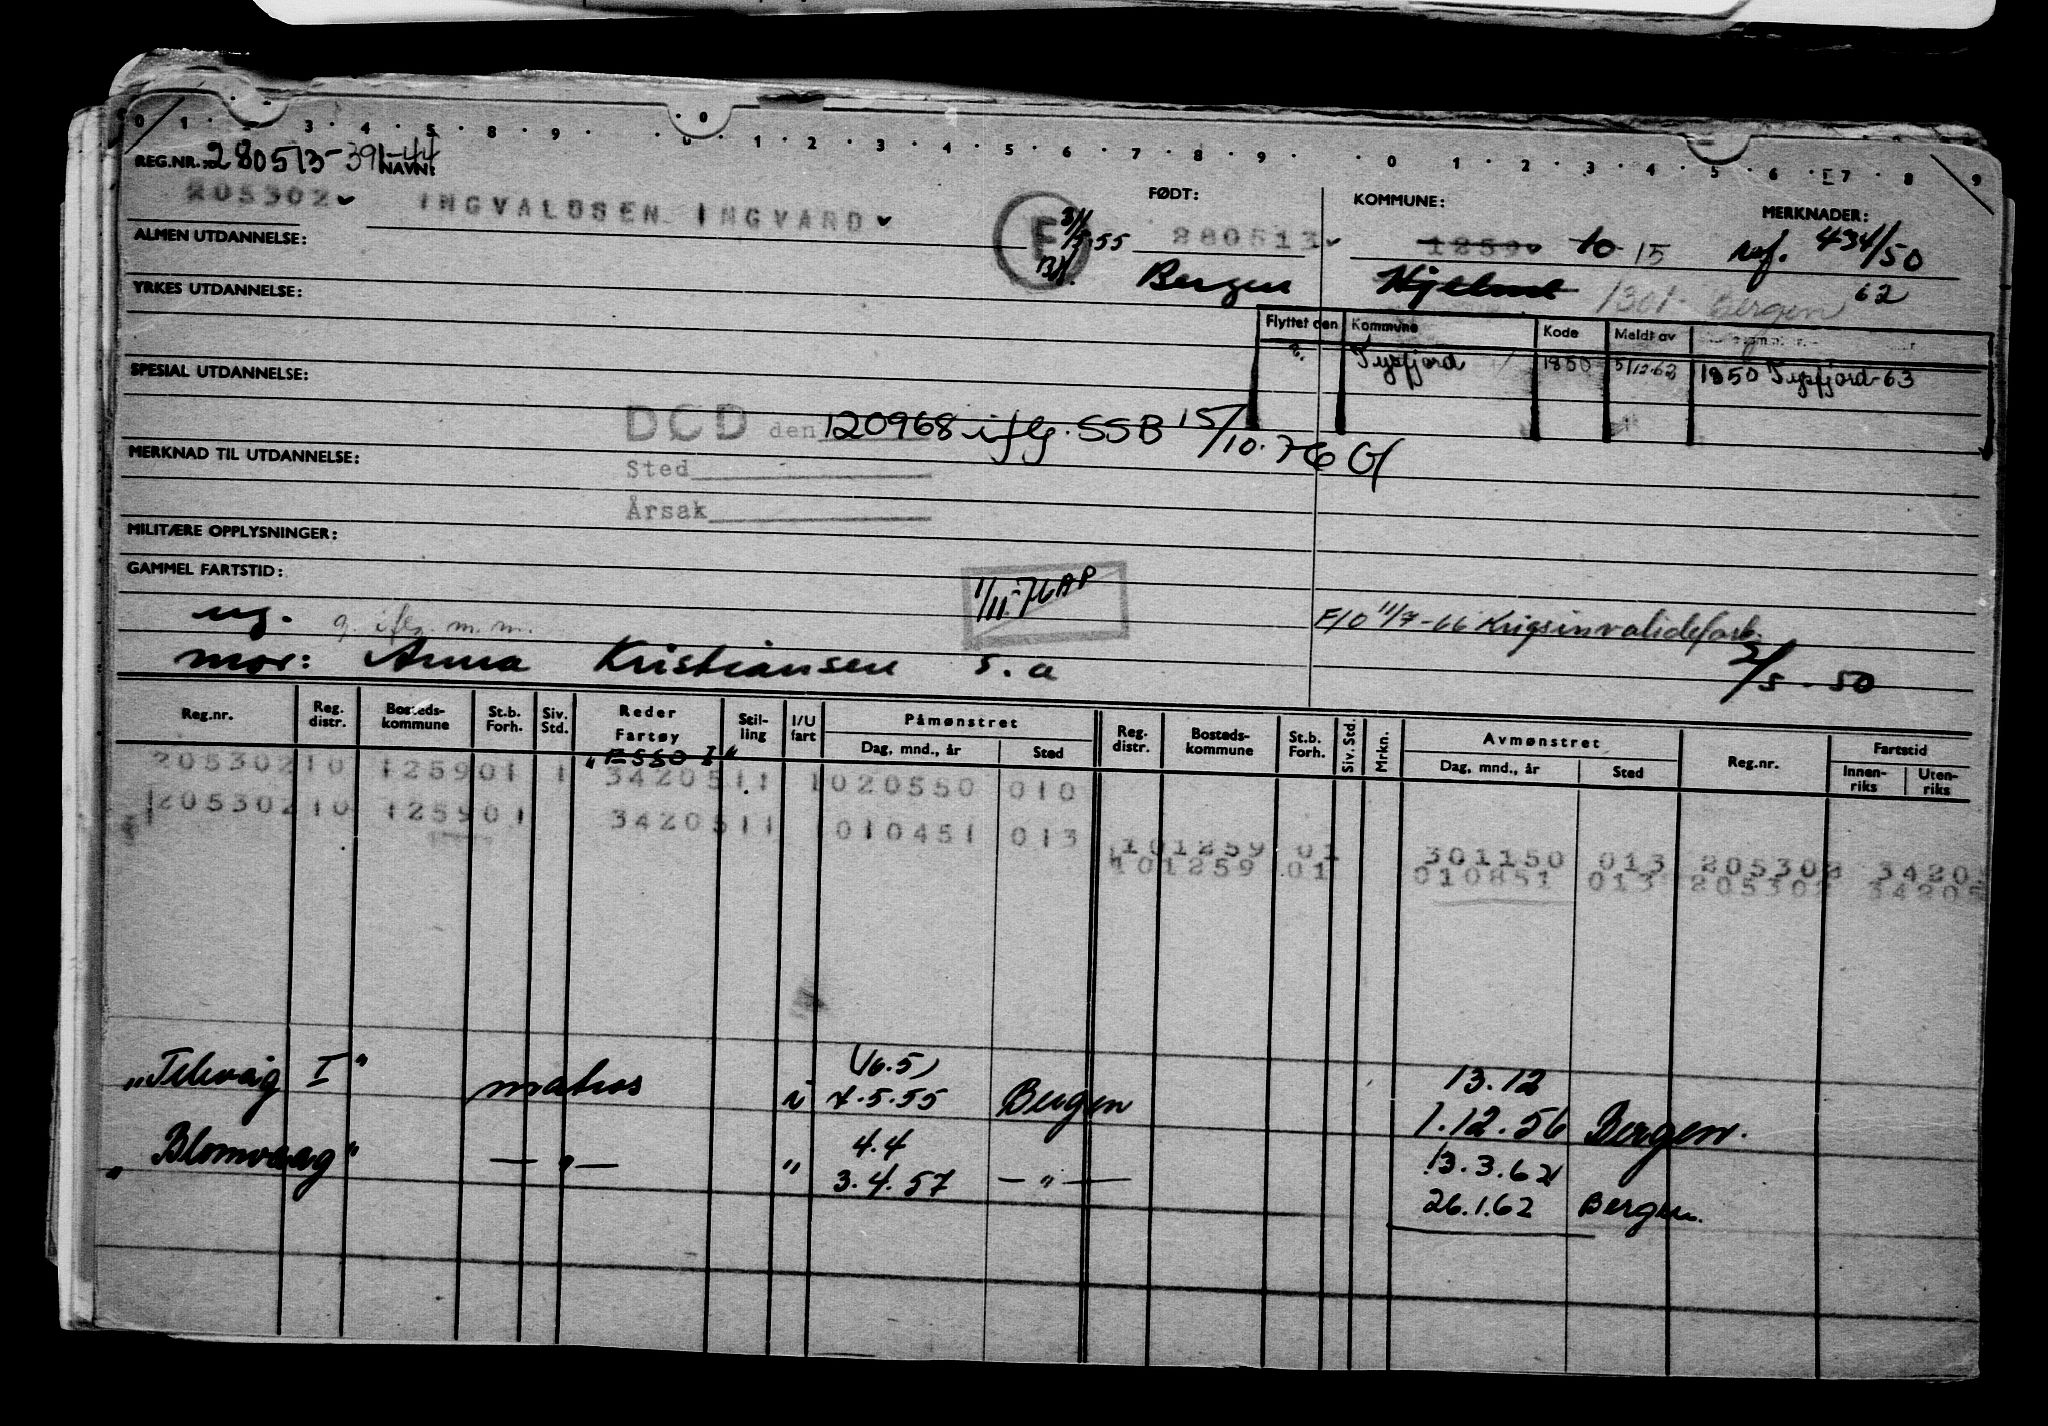 0 1 2 3 4 5 8 9 0 1 2 3 4 5 6 7 8 9 0 1 2 3 4 5 6 7 8 9
REG.NR. 280513-391-44 NAVN:
FØDT: KOMMUNE: MERKNADER:
205302 INGVALDSEN INGVARD 280513 12590 to 15 ref. 434/50
ALMEN UTDANNELSE: E 31/5 55
Bergen 1301 - Bergen 62
YRKES UTDANNELSE:
Flyttet den Kommune Kode Meldt av
?. Tysfjord 1850 5/12-62 1850 Tysfjord-63
SPESIAL UTDANNELSE:
DØD den 120968 iflg. SSB 15/10.76
MERKNAD TIL UTDANNELSE:
Sted
Årsak
MILITÆRE OPPLYSNINGER:
GAMMEL FARTSTID:
1/11-76 AP
ug. g. iflg. m.m. F/O 11/7-66 Krigsinvalideforb.
mor: Anna Kristiansen s.a 2/5-50
Reg.nr. Reg. distr. Bosteds-kommune St.b. Forh. Siv. Std. Reder Fartøy Stil-ling I/U fart Påmønstret Dag, mnd., år Sted Reg. distr. Bosteds-kommune St.b. Forh. Siv. Std. Mrkn. Avmønstret Dag, mnd., år Sted Reg.nr. Fartstid Innen-riks Uten-riks
205302 10 1259 01 1 3420511 1 020550 010
205302 10 1259 01 3420511 1 010451 013
101259 01 301150 013 205302 3420
101259 01 010851 013 205302 34205
(16.5) 13.12
"Telavåg I" matros i 7.5.55 Bergen 1.12.56 Bergen.
4.4 13.3.62
"Blomvaag" — " — " 3.4.57 — " — 26.1.62 Bergen.